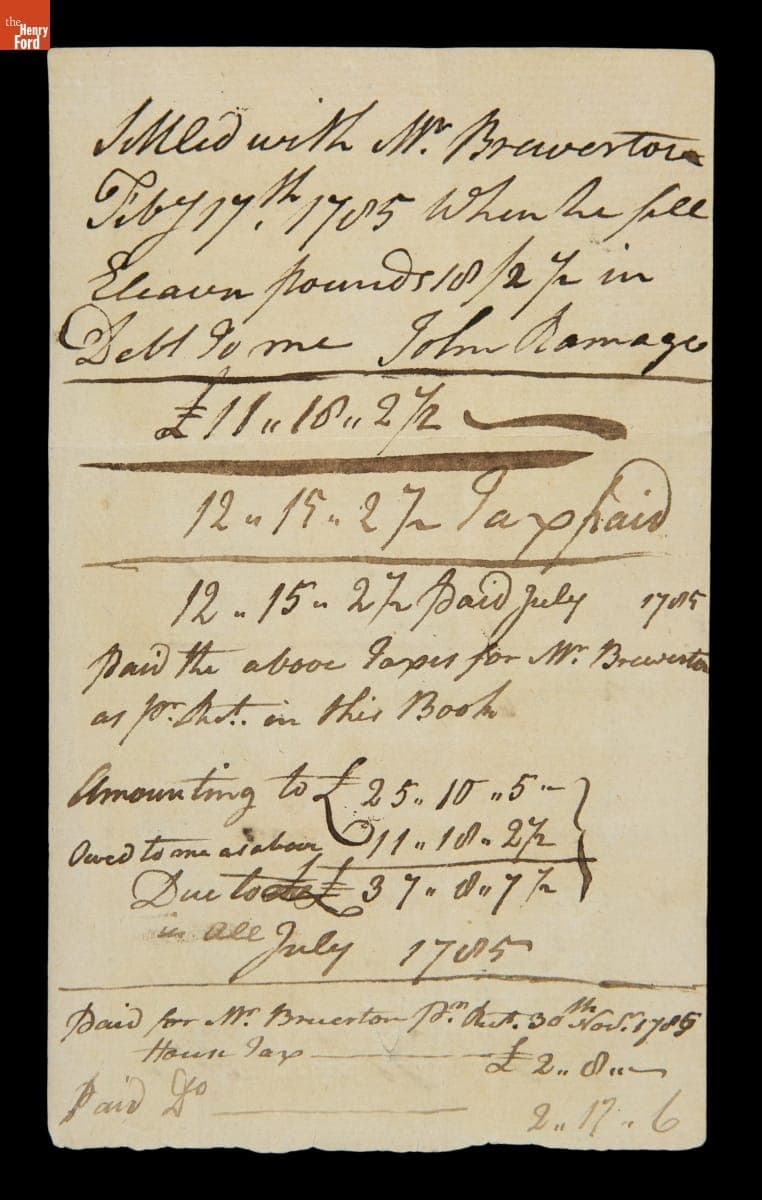 the
Henry
Ford
Settled with Mr. Brewerton
Feby 17th. 1785 When he fell
Eleavn pounds 18/2 1/2 in
Debt To me John Ramage
£11 „ 18 „ 2 1/2
12 „ 15 „ 2 1/2 Tax paid
12 „ 15 „ 2 1/2 paid July 1785
paid the above Taxes for Mr. Brewerton
as pr. Rct. in this Book
Amounting to £ 25 „ 10 „ 5 „ –
Owed to me as above 11 „ 18 „ 2 1/2
Due to £ 37 „ 8 „ 7 1/2
in all July 1785
Paid for Mr. Bruerton pr. Rct. 30th Novr. 1785
House Tax — £ 2 „ 8 „ —
Paid Do — 2 „ 17 „ 6